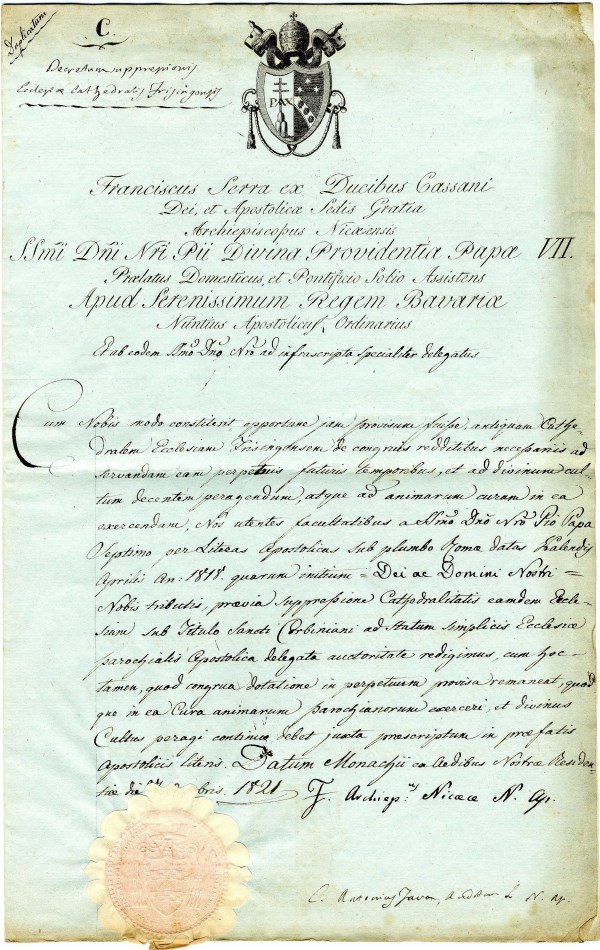 Duplicatum
C.
Decretum appressionis
Ecclesiæ Cathedralis Frisingensis
PAX
Franciscus Serra ex Ducibus Cassani
Dei, et Apostolicæ Sedis Gratia
Archiepiscopus Nicæensis
SSmi Dñi Nrĩ Pii Divina Providentia Papæ VII.
Prælatus Domesticus, et Pontificio Solio Assistens
Apud Serenissimum Regem Bavariæ
Nuntius Apostolicus Ordinarius
Et ab eodem SSmo Dño Nro ad infrascripta specialiter delegatus
Cum Nobis modo constiterit opportune jam provisum fuisse, antiquam Cathe-
dralem Ecclesiam Frisingensem de congruis redditibus necessariis ad
servandam eam perpetuis futuris temporibus, et ad divinum cul-
tum decentem peragendum, atque ad animarum curam in ea
exercendam, Nos utentes facultatibus a SSmo Dño Nro Pio Papa
Septimo per Literas Apostolicas sub plumbo Romæ datas Kalendis
Aprilis An: 1818. quarum initium = Dei ac Domini Nostri =
Nobis tributis, prævia suppressione Cathedralitatis eamdem Eccle-
siam sub Titulo Sancti Corbiniani ad Statum simplicis Ecclesiæ
parochialis Apostolica delegata auctoritate redigimus, cum hoc
tamen, quod congrua dotatione in perpetuum provisa remaneat, quod-
que in ea Cura animarum parochianorum exerceri, et divinus
Cultus peragi continuo debet juxta præscriptum in præfatis
Apostolicis literis. Datum Monachii ex Aedibus Nostræ Residen-
tiæ die bris. 1821
F. Archiep.us Nicææ N. Ap.
C. Antonius Auditor N. Ap.